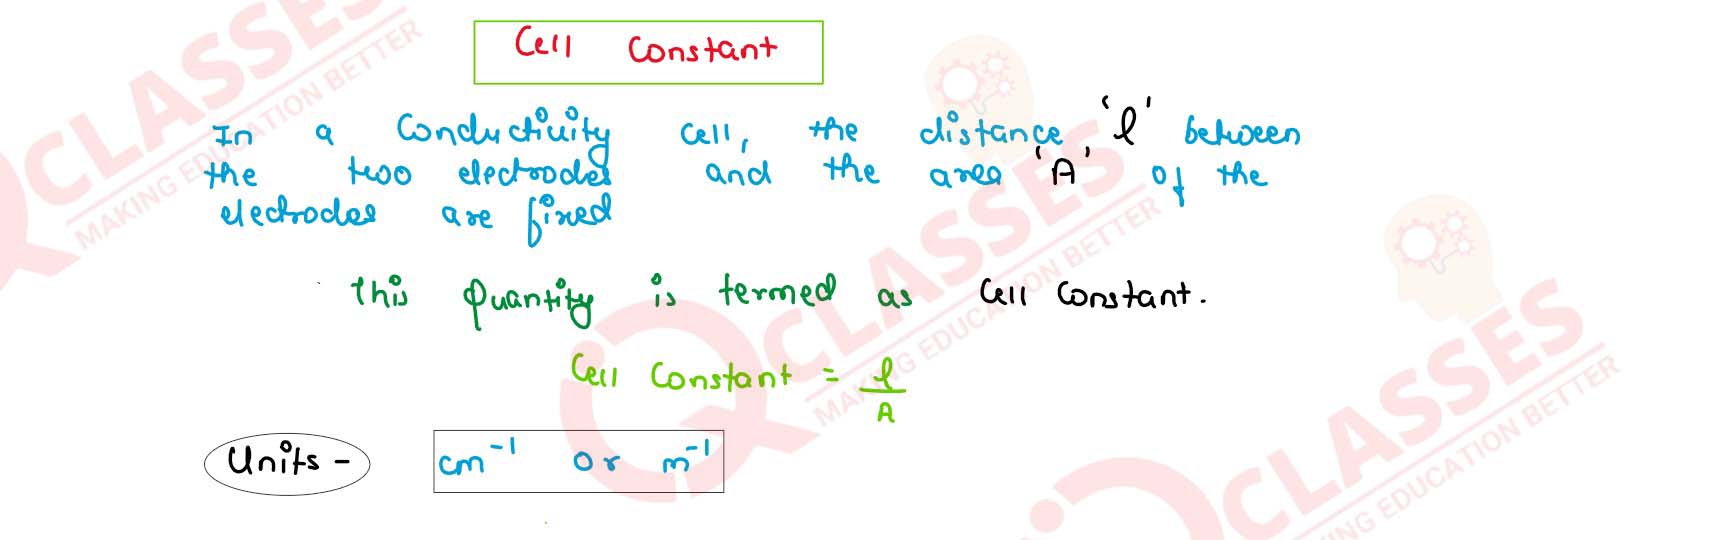 Cell Constant
In a Conductivity cell, the distance 'l' between
the two electrodes and the area 'A' of the
electrodes are fixed
This Quantity is termed as Cell Constant.
Cell Constant = l/A
Units - cm⁻¹ or m⁻¹
CLASSES
MAKING EDUCATION BETTER
CLASSES
MAKING EDUCATION BETTER
CLASSES
MAKING EDUCATION BETTER